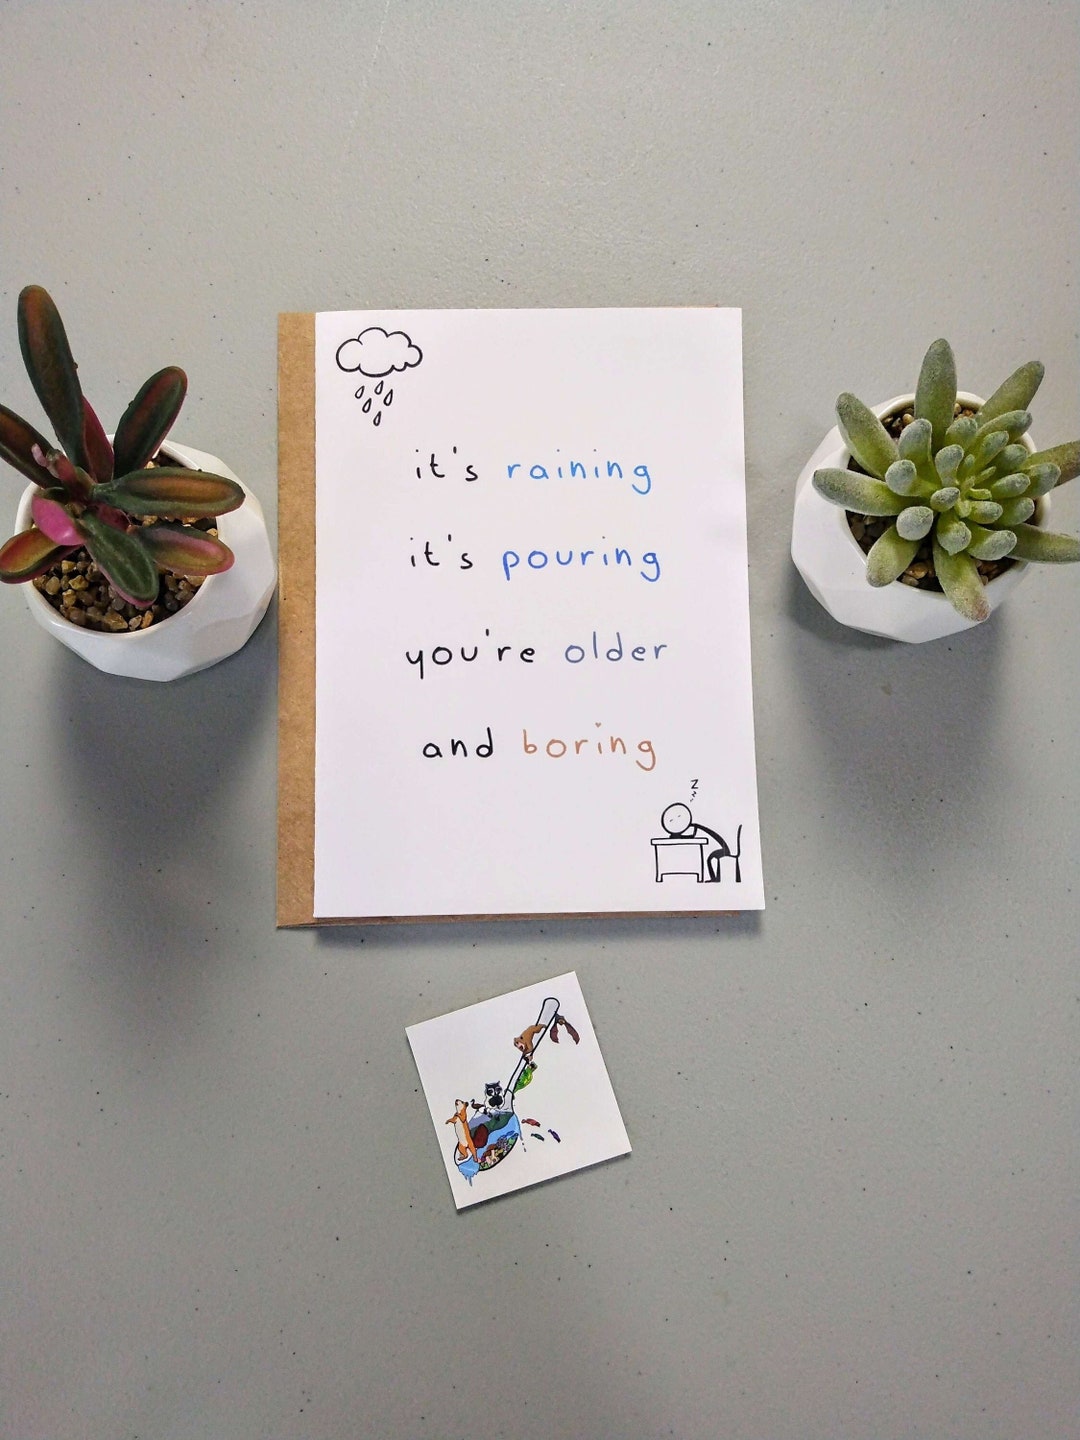 it's raining
it's pouring
you're older
and boring
z